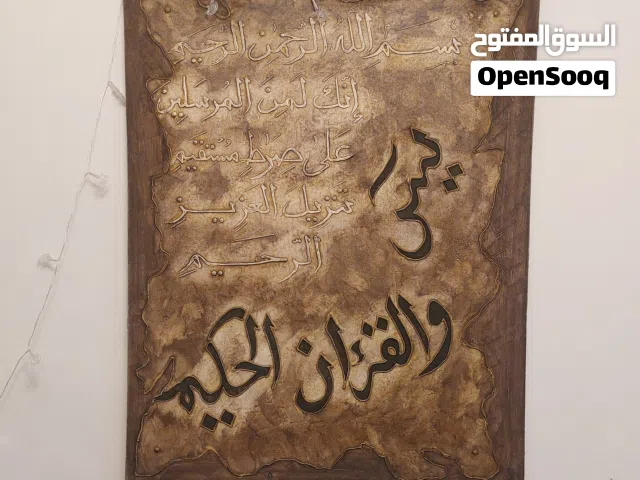 السوق المفتوح
OpenSooq
بسم الله الرحمن الرحيم
إنك لمن المرسلين
على صرط مستقيم
تنزيل العزيز
الرحيم
يس
والقرءان الحكيم